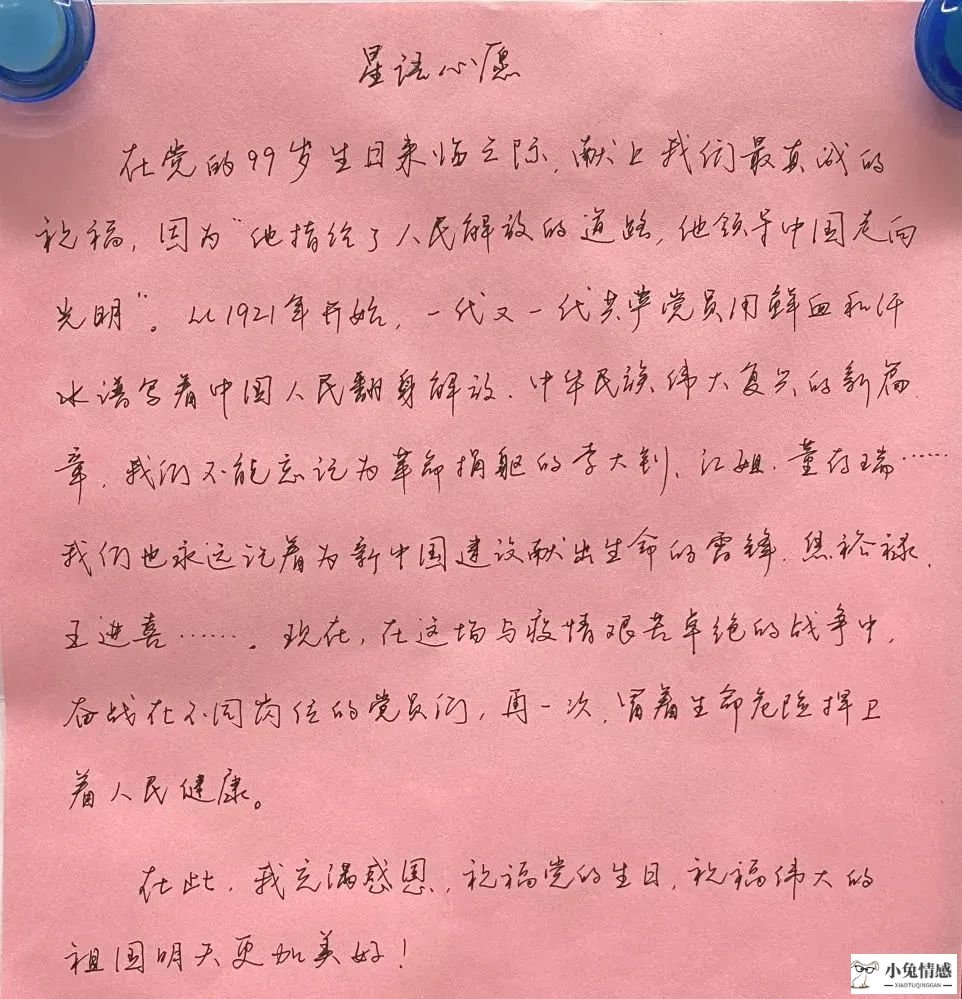 星语心愿
在党的99岁生日来临之际,献上我们最真诚的
祝福,因为“他指给了人民解放的道路,他领导中国走向
光明”。从1921年开始,一代又一代共产党员用鲜血和汗
水谱写着中国人民翻身解放、中华民族伟大复兴的新篇
章,我们不能忘记为革命捐躯的李大钊、江姐、董存瑞……
我们也永远记着为新中国建设献出生命的雷锋、焦裕禄、
王进喜……。现在,在这场与疫情艰苦卓绝的战争中,
奋战在不同岗位的党员们,再一次,冒着生命危险捍卫
着人民健康。
在此,我充满感恩,祝福党的生日,祝福伟大的
祖国明天更加美好!
小兔情感
XIAOTUQINGGAN